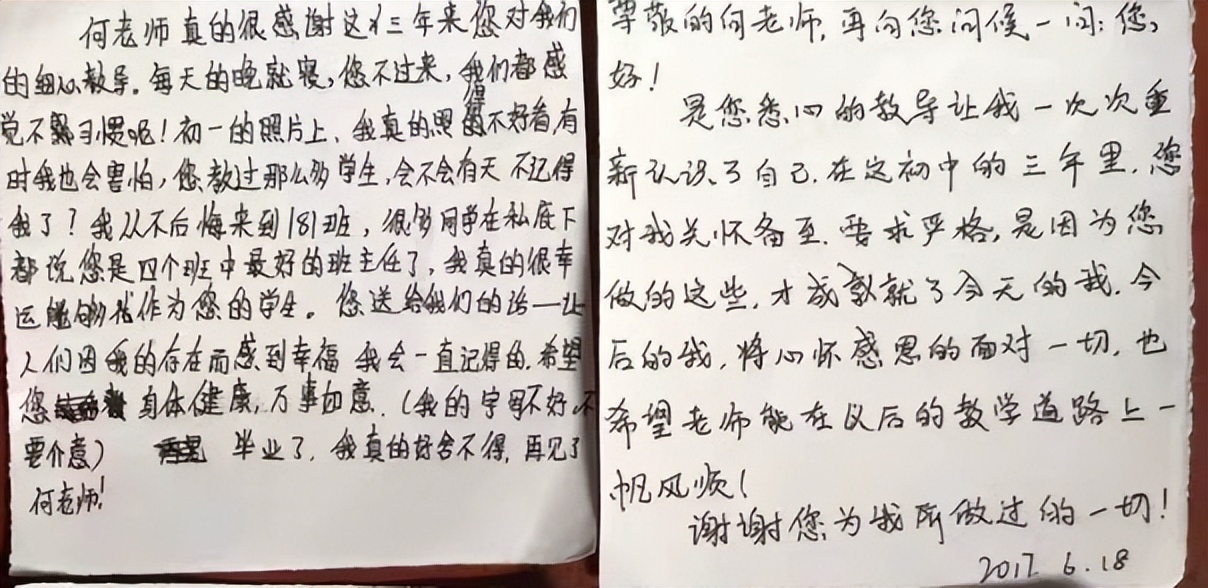 何老师真的很感谢这三年来您对我们
的细心教导。每天的晚就寝,您不过来,我们都感
觉不习惯呢!初一的照片上,我真的照得不好看,有
时我也会害怕,您教过那么多学生,会不会有天不记得
我了?我从不后悔来到181班,很多同学在私底下
都说您是四个班中最好的班主任了,我真的很幸
运能够作为您的学生。您送给我们的话——让
人们因我的存在而感到幸福 我会一直记得的.希望
您 身体健康,万事如意.(我的字写不好,不
要介意) 毕业了,我真的好舍不得,再见了
何老师!
尊敬的何老师,再向您问候一问:您
好!
是您悉心的教导让我一次次重
新认识了自己.在这初中的三年里,您
对我关怀备至.要求严格,是因为您
做的这些,才成就了今天的我.今
后的我,将心怀感恩的面对一切,也
希望老师能在以后的教学道路上一
帆风顺!
谢谢您为我所做过的一切!
2017. 6.18